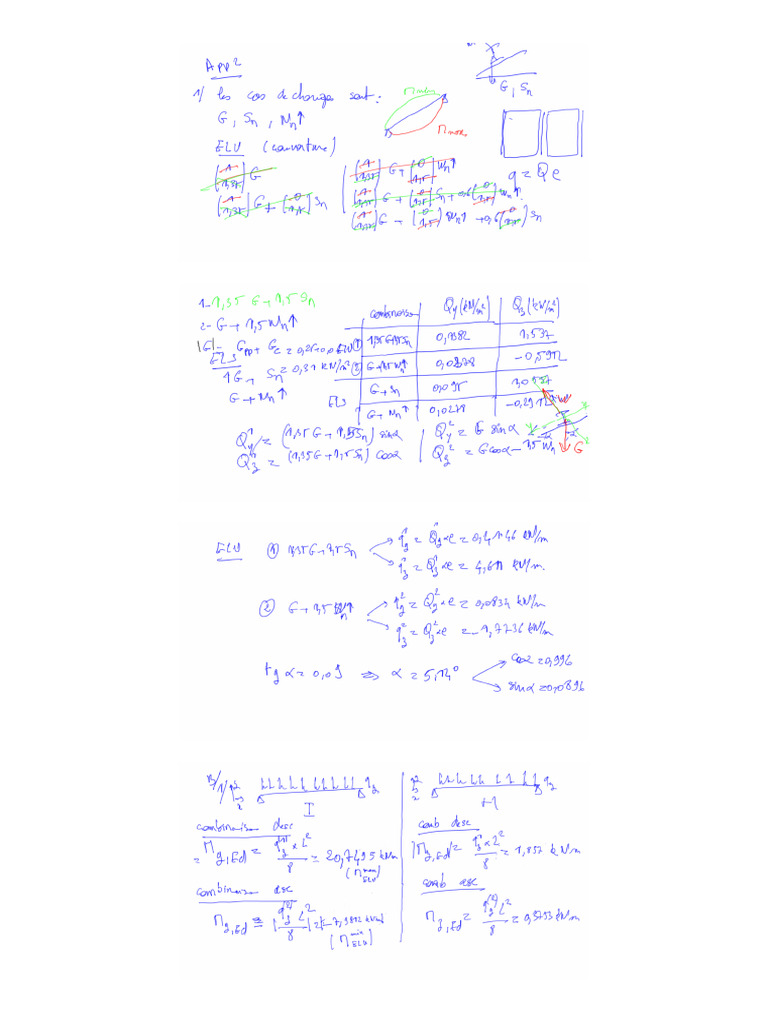 App 2
1/ les cas de charges sont :
G, Sn, Wn↑
ELU (couverture)
G, Sn
Mmin
Mmax
q = Q e
(1 / 1,35) G
(1 / 1,35) G + (0 / 1,5) Sn
(1 / 1,35) G + (0 / 1,5) Wn↑
(1 / 1,35) G + (0 / 1,5) Sn + 0,6 (0 / 1,5) Wn↑
(1 / 1,35) G + (0 / 1,5) Wn↑ + 0,6 (0 / 1,5) Sn
1- 1,35 G + 1,5 Sn
2- G + 1,5 Wn↑
ELS
G + Sn
G + Wn↑
combinaison | Qy (kN/m²) | Qz (kN/m²)
ELU ① 1,35G+1,5Sn | 0,1382 | 1,537
② G+1,5Wn↑ | 0,0278 | -0,5912
ELS G + Sn | 0,095 | 1,0537
G + Wn↑ | 0,0278 | -0,2912
G
Qy¹ = (1,35G + 1,5Sn) sinα
Qz¹ = (1,35G + 1,5Sn) cosα
Qy² = G sinα
Qz² = G cosα - 1,5 Wn
ELU ① 1,35G + 1,5Sn
qy¹ = Qy¹ × e = 0,4146 kN/m
qz¹ = Qz¹ × e = 4,611 kN/m.
② G + 1,5 Wn↑
qy² = Qy² × e = 0,0834 kN/m
qz² = Qz² × e = -1,7736 kN/m
tg α = 0,09 ⇒ α = 5,14°
cosα = 0,996
sinα = 0,0896
qz
I
combinaison desc
My,Ed = qz⁽¹⁾ × L² / 8 = 20,7495 kNm
(M max ELU)
combinaison asc
My,Ed = |qz⁽²⁾ L² / 8| = -7,9812 kNm
(M min ELU)
qy
comb desc
Mz,Ed = qy¹ × L² / 8 = 1,857 kNm
comb asc
Mz,Ed = qy⁽²⁾ L² / 8 = 0,3753 kNm